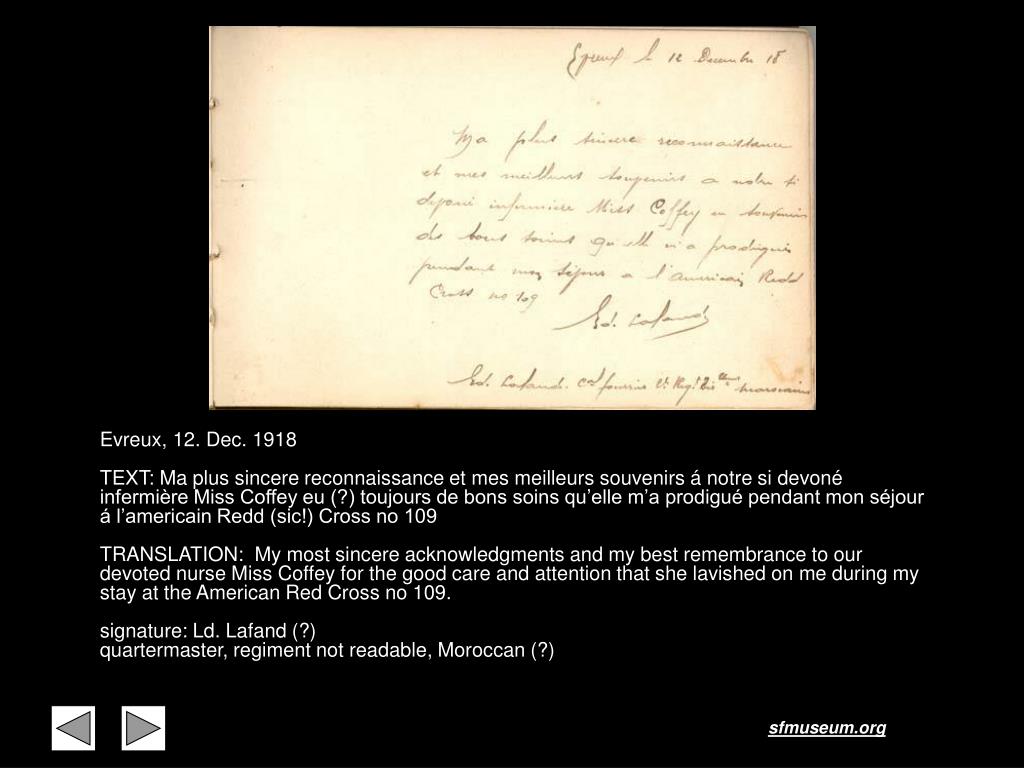 Evreux le 12 Decembre 18
Ma plus sincere reconnaissance
et mes meilleurs souvenirs a notre si
devoué infirmiere Miss Coffey en souvenir
des bons soins qu'elle m'a prodigués
pendant mon séjour a l'americain Redd
Cross no 109
Ed. Lafand
Ed. Lafand. Cal fourrier Regt marocains
Evreux, 12. Dec. 1918
TEXT: Ma plus sincere reconnaissance et mes meilleurs souvenirs á notre si devoné
infermière Miss Coffey eu (?) toujours de bons soins qu’elle m’a prodigué pendant mon séjour
á l’americain Redd (sic!) Cross no 109
TRANSLATION:  My most sincere acknowledgments and my best remembrance to our
devoted nurse Miss Coffey for the good care and attention that she lavished on me during my
stay at the American Red Cross no 109.
signature: Ld. Lafand (?)
quartermaster, regiment not readable, Moroccan (?)
sfmuseum.org